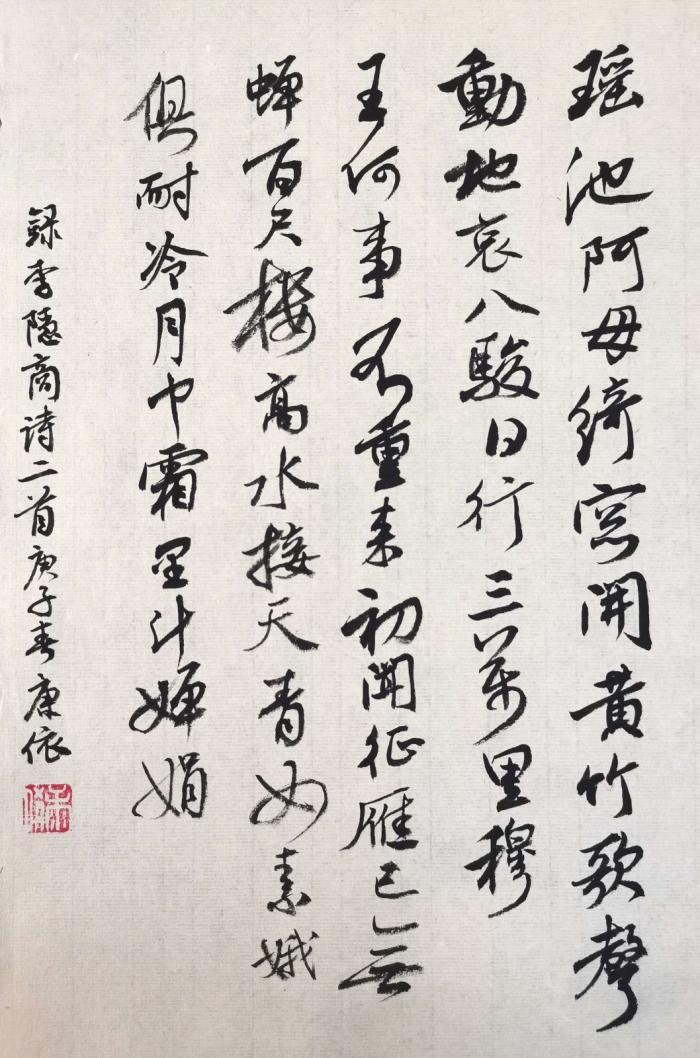 瑶池阿母綺窓開黄竹歌聲
動地哀八駿日行三萬里穆
王何事不重来初聞征雁已無
蝉百尺楼高水接天青女素娥
俱耐冷月中霜里斗婵娟
録李隐商诗二首庚子春康依